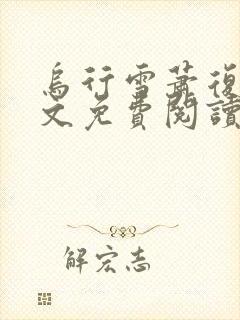 烏行雪蕭復
文免費閱讀
解宏志